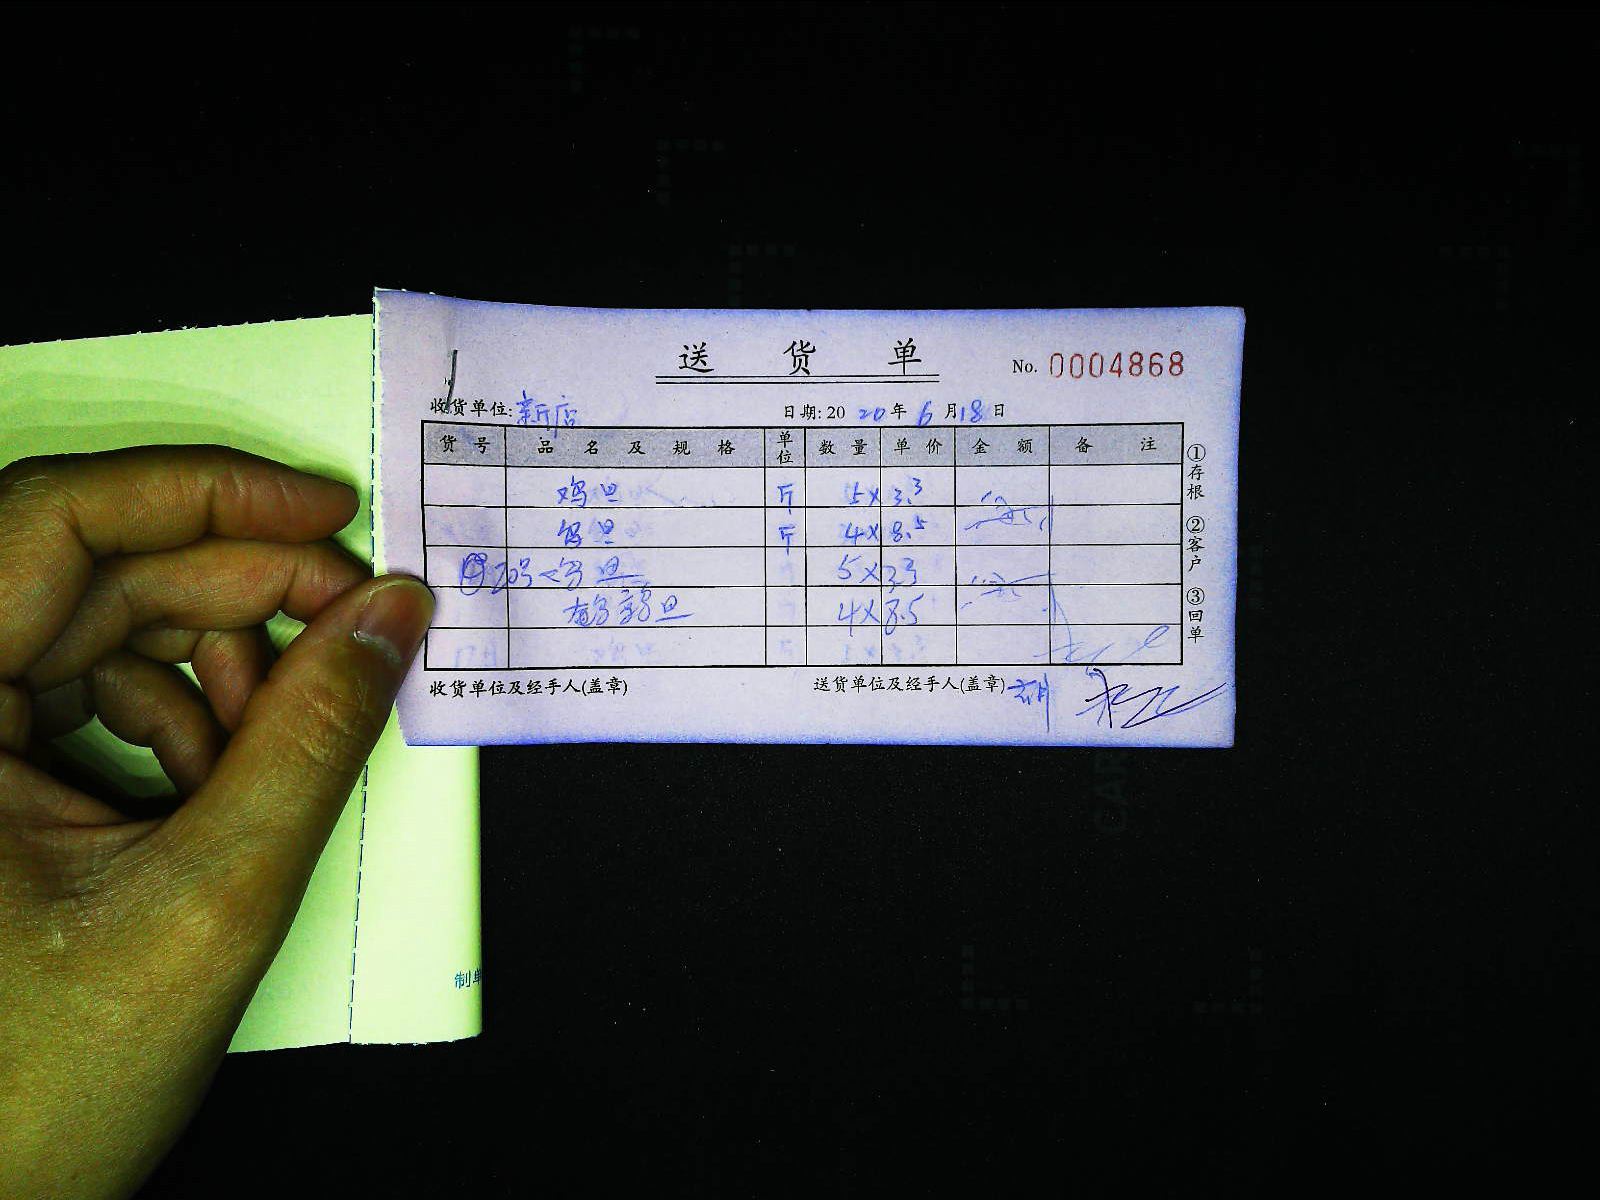 送 货 单
No. 0004868
收货单位: 新店
日期: 20 20 年 6 月 18 日
货 号 品 名 及 规 格 单位 数 量 单 价 金 额 备 注
鸡旦 斤 5 x 3.3
斤 4 x 8.5
20号 旦 5 x 3.3
鹌鹑旦 4 x 8.5
①存根 ②客户 ③回单
收货单位及经手人(盖章)
送货单位及经手人(盖章)
制单